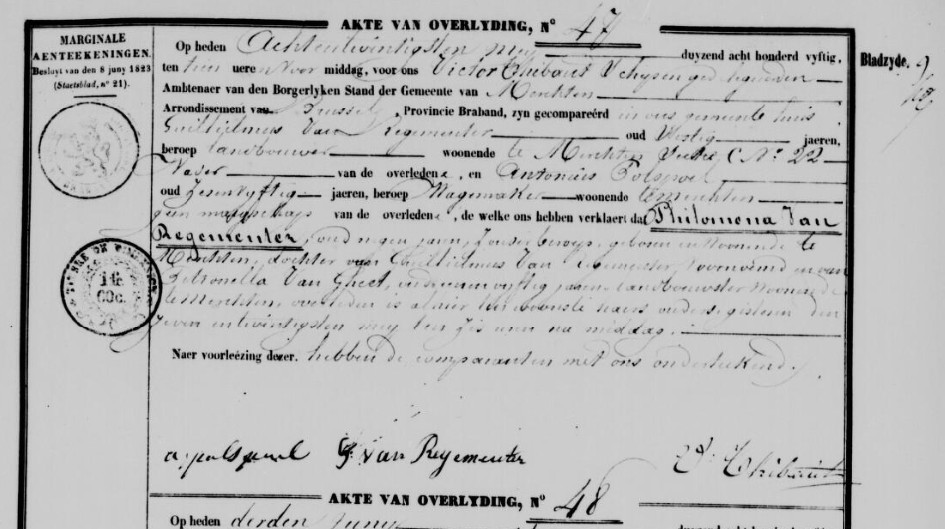 AKTE VAN OVERLYDING, N° 47
MARGINALE
AENTEEKENINGEN.
Besluyt van den 8 juny 1823
(Staetsblad, n° 21).
Bladzyde.
Op heden Achtentwintigsten mey duyzend acht honderd vyftig,
ten uere voor middag, voor ons Victor Thibaut Schepen
Ambtenaer van den Borgerlyken Stand der Gemeente van Merchten
Arrondissement van Brussel, Provincie Braband, zyn gecompareérd in ons gemeente huis
Guillielmus Van Regementer oud jaeren,
beroep landbouwer woonende te Merchten Sectie C N° 22
Vader van de overledene, en Antonius Polspoel
oud Zesenvyftig jaeren, beroep Wagemaker woonende te Merchten
geen maegschap van de overledene, de welke ons hebben verklaert dat Philomena Van
Regementer, oud negen jaren, zonder beroep, geboren en woonende te
Merchten, dochter van Guillielmus Van Regementer, voornoemd en van
Petronella Van Gheet, oud vyftig jaren, landbouwster woonende
te Merchten, overleden is alhier ten woonste haers ouders, gisteren den
zeven entwintigsten mey ten zes uren na middag.
Naer voorleézing dezer. hebben de comparanten met ons onderteekend.
a. polspoel G. Van Regementer V. Thibaut
AKTE VAN OVERLYDING, N° 48
Op heden derden juny